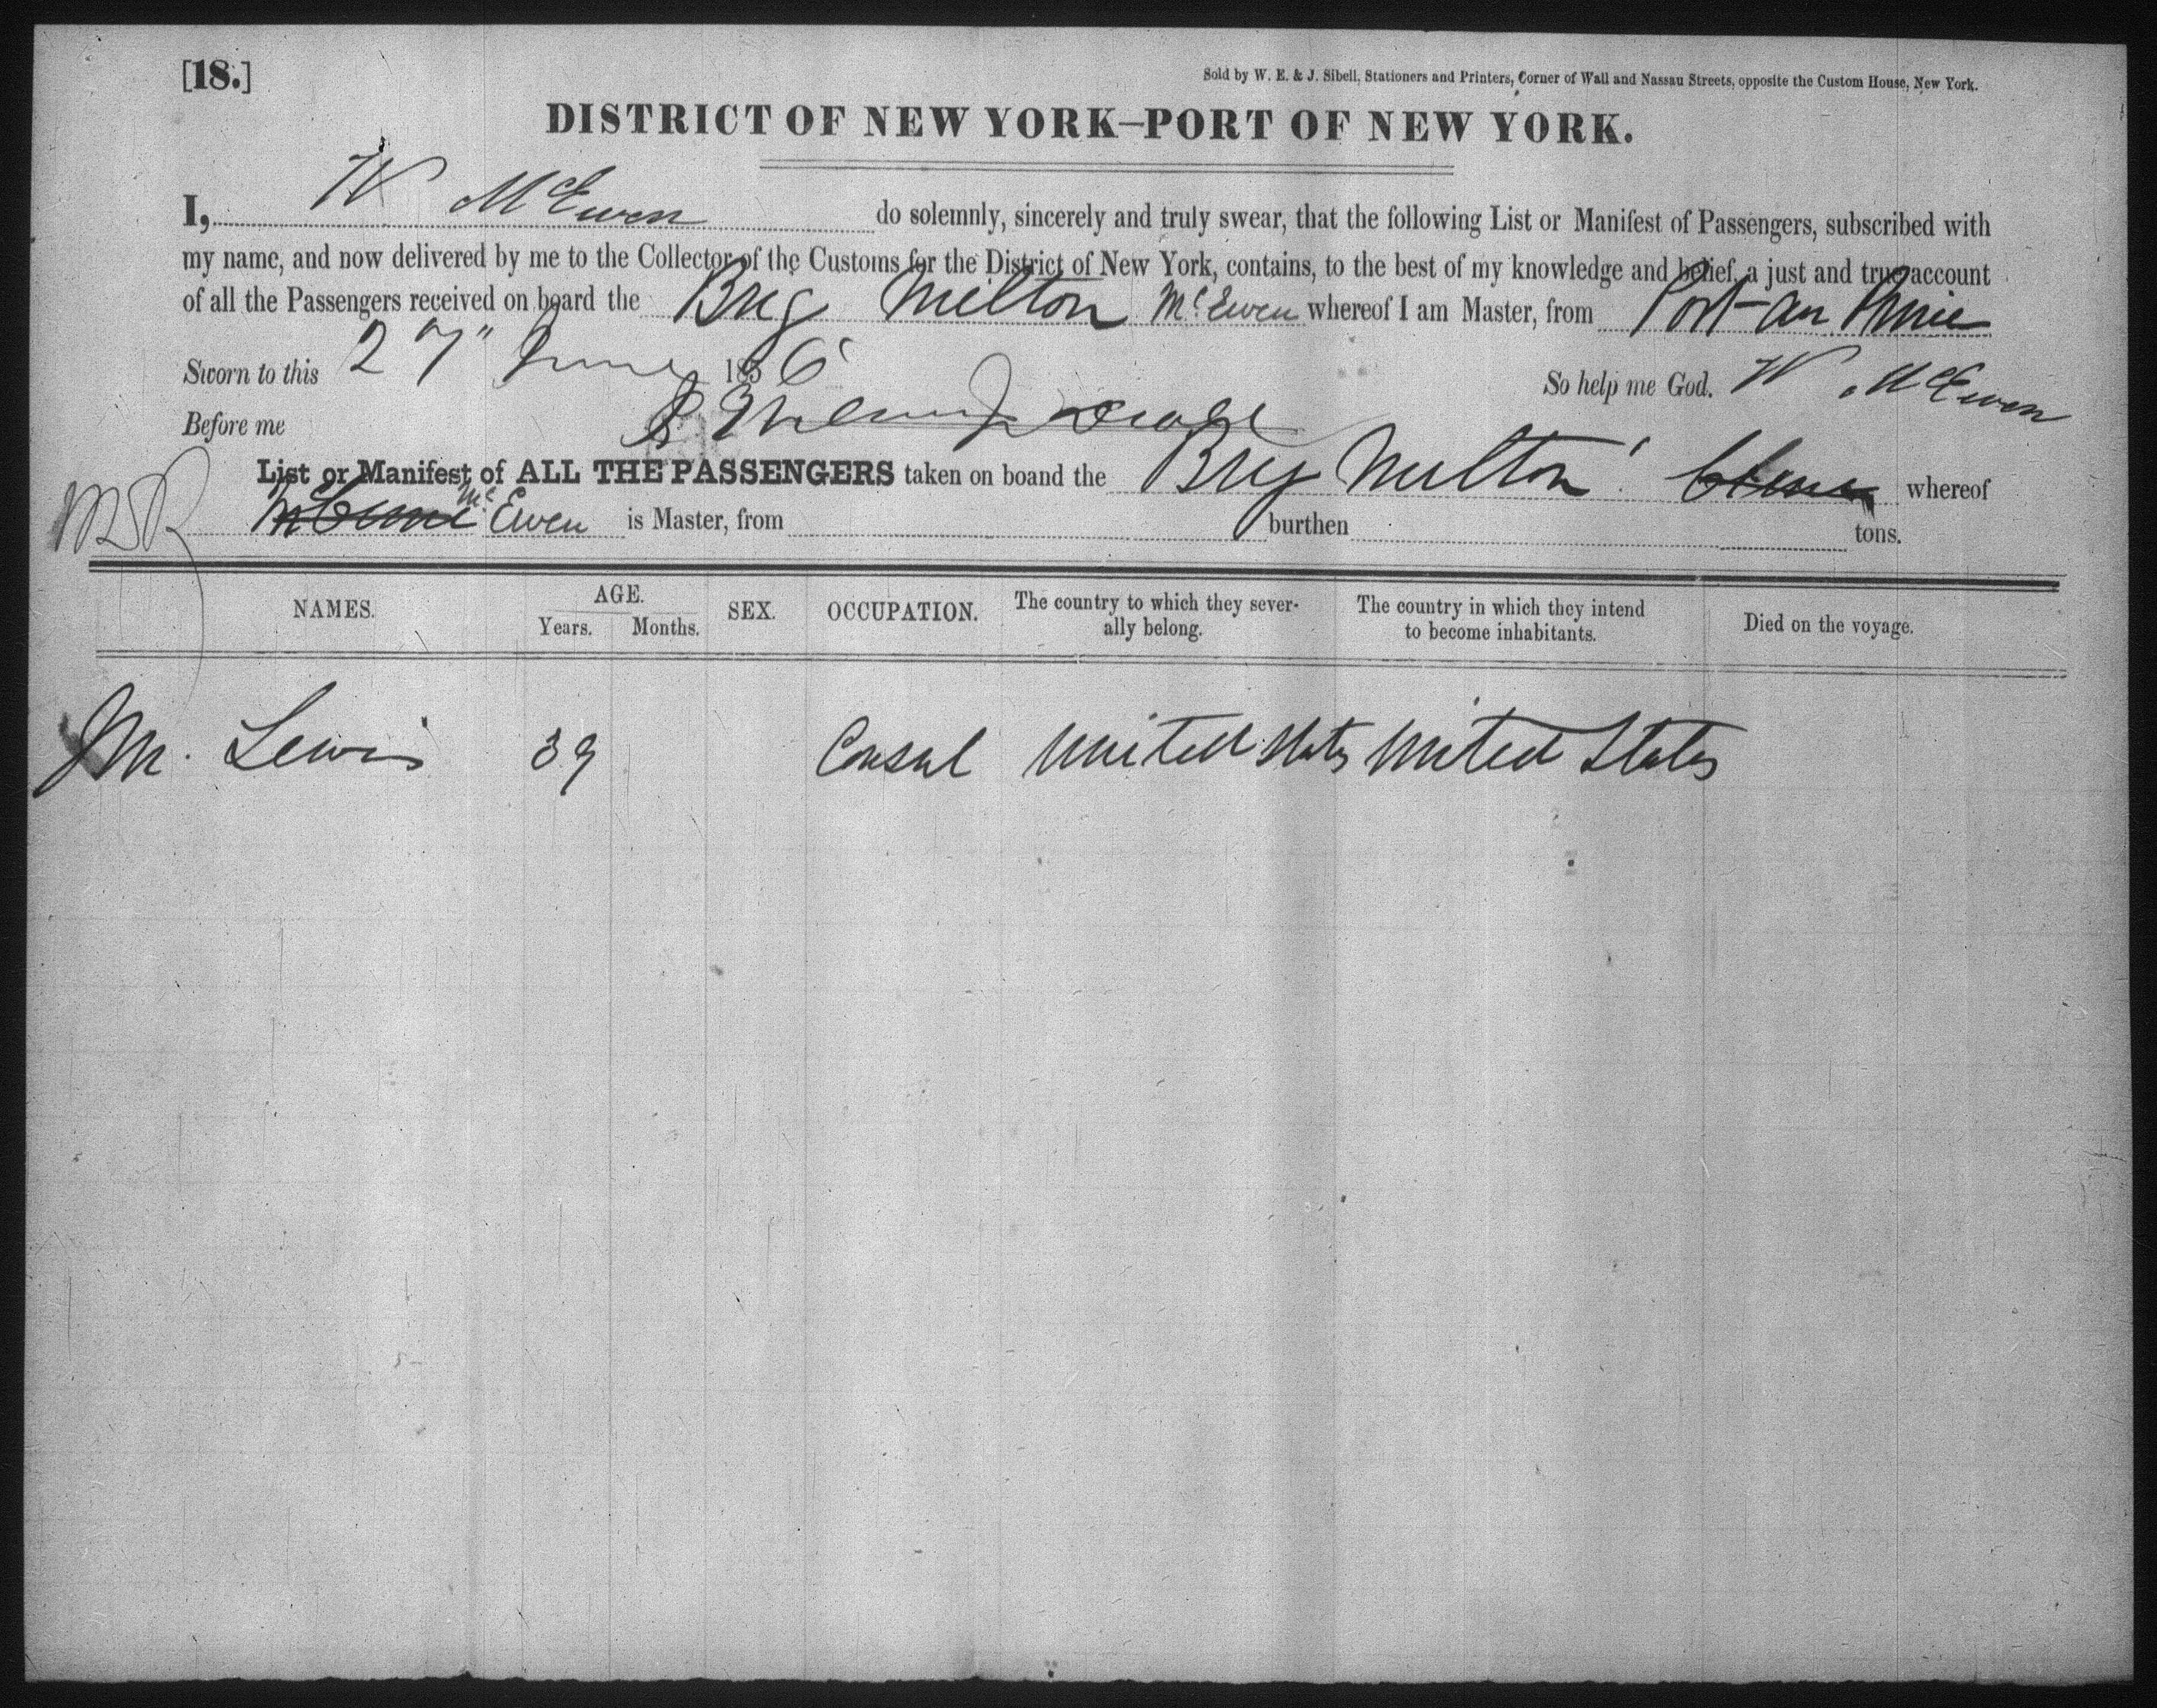 [18.]
Sold by W. E. & J. Sibell, Stationers and Printers, Corner of Wall and Nassau Streets, opposite the Custom House, New York.
DISTRICT OF NEW YORK—PORT OF NEW YORK.
I, W McEwen do solemnly, sincerely and truly swear, that the following List or Manifest of Passengers, subscribed with
my name, and now delivered by me to the Collector of the Customs for the District of New York, contains, to the best of my knowledge and belief, a just and true account
of all the Passengers received on board the Brig Milton McEwen whereof I am Master, from Port-au Prince
Sworn to this 27" June 1856 So help me God. W McEwen
Before me
List or Manifest of ALL THE PASSENGERS taken on boand the Brig Milton whereof
McEwen is Master, from burthen tons.
NAMES. AGE. Years. Months. SEX. OCCUPATION. The country to which they severally belong. The country in which they intend to become inhabitants. Died on the voyage.
Lewis 39 Consul United States United States